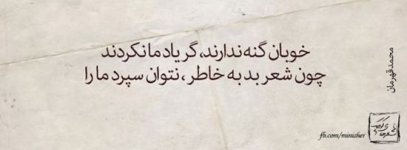 خوبان گنه ندارند، گر یاد ما نکردند
چون شعر بد به خاطر، نتوان سپرد ما را
محمد قهرمان
fb.com/minisher